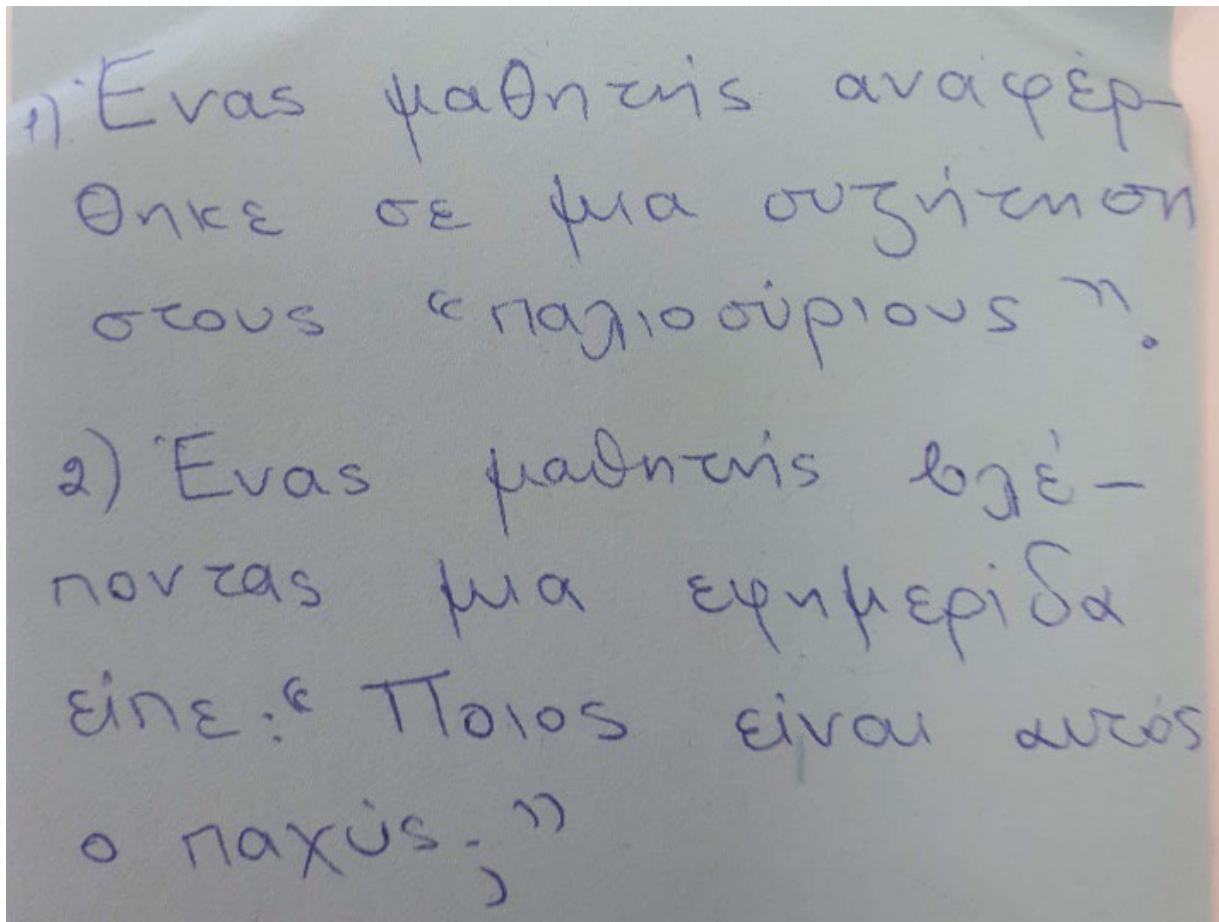 1) Ένας μαθητής αναφέρ-
θηκε σε μια συζήτηση
στους “παλιοσύριους”.
2) Ένας μαθητής βλέ-
ποντας μια εφημερίδα
είπε: “Ποιος είναι αυτός
ο παχύς;”